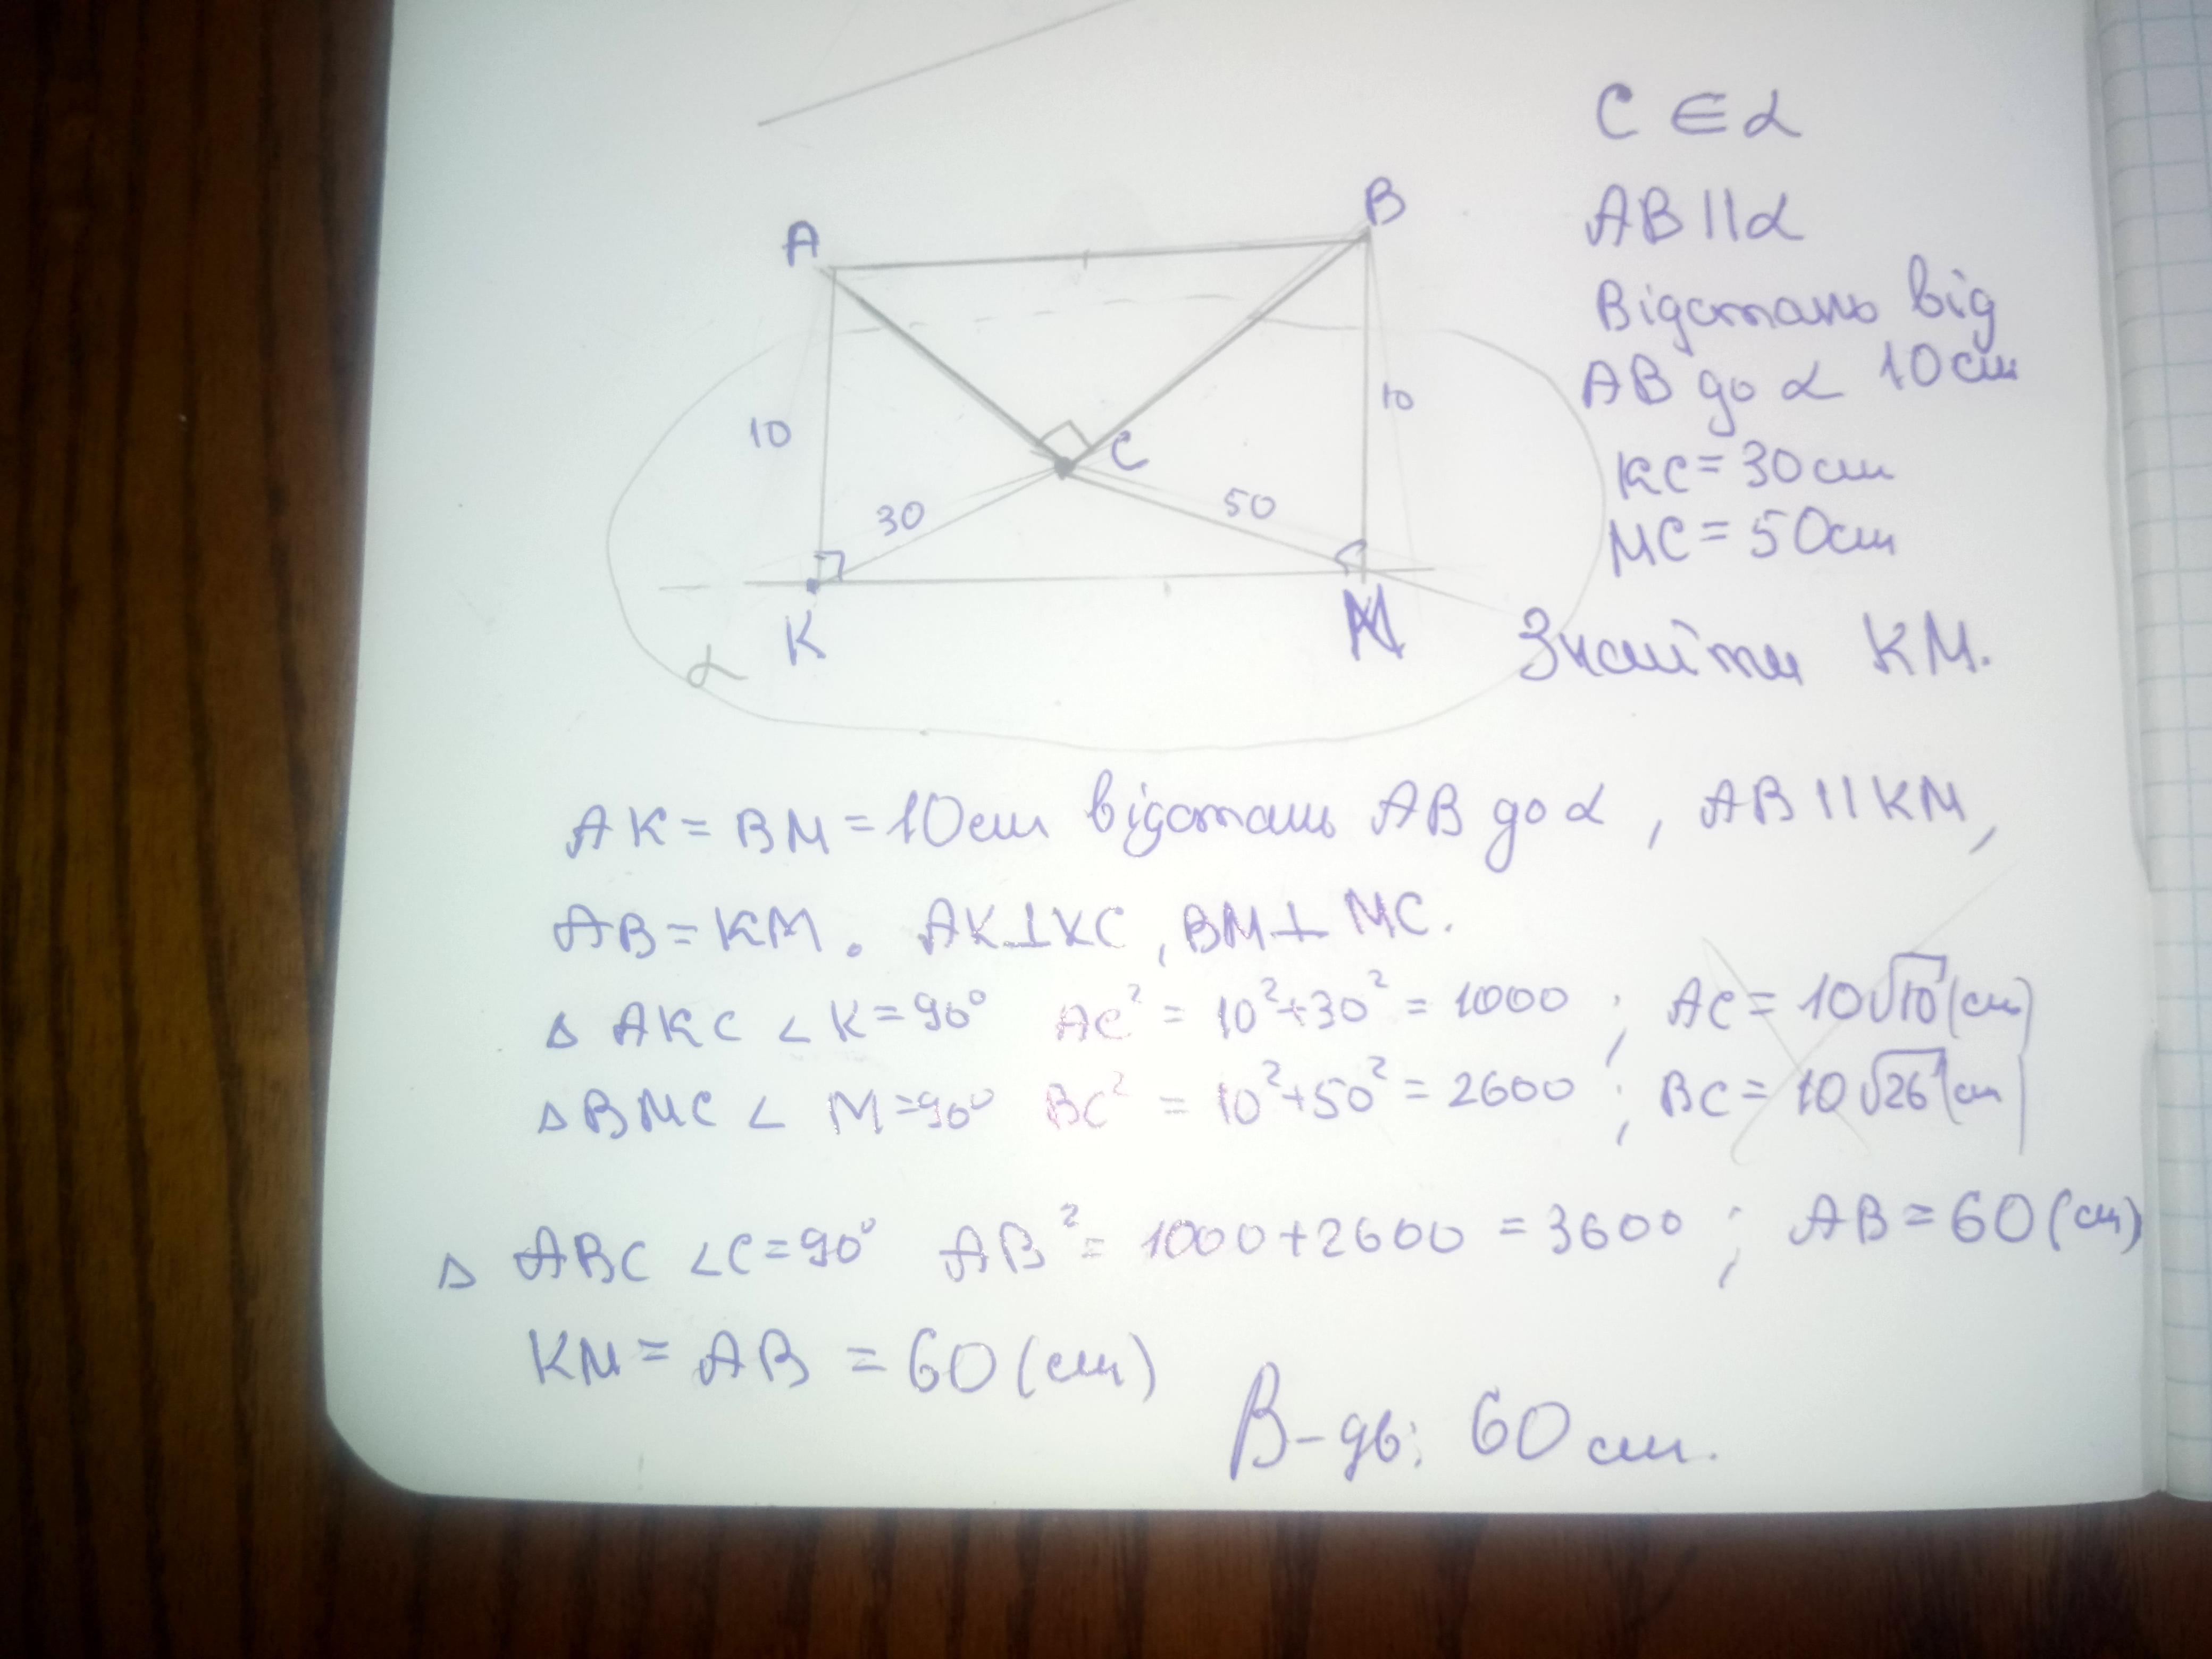 C ∈ α
AB || α
Відстань від
AB до α 10 см
KC = 30 см
MC = 50 см
Знайти KM.
A
B
10
10
C
30
50
K
M
α
AK = BM = 10 см відстань AB до α, AB || KM,
AB = KM. AK ⊥ KC, BM ⊥ MC.
△ AKC ∠ K = 90° AC² = 10² + 30² = 1000 ; AC = 10√10 (см)
△ BMC ∠ M = 90° BC² = 10² + 50² = 2600 ; BC = 10√26 (см)
△ ABC ∠C = 90° AB² = 1000 + 2600 = 3600 ; AB = 60 (см)
KM = AB = 60 (см)
В-дь: 60 см.